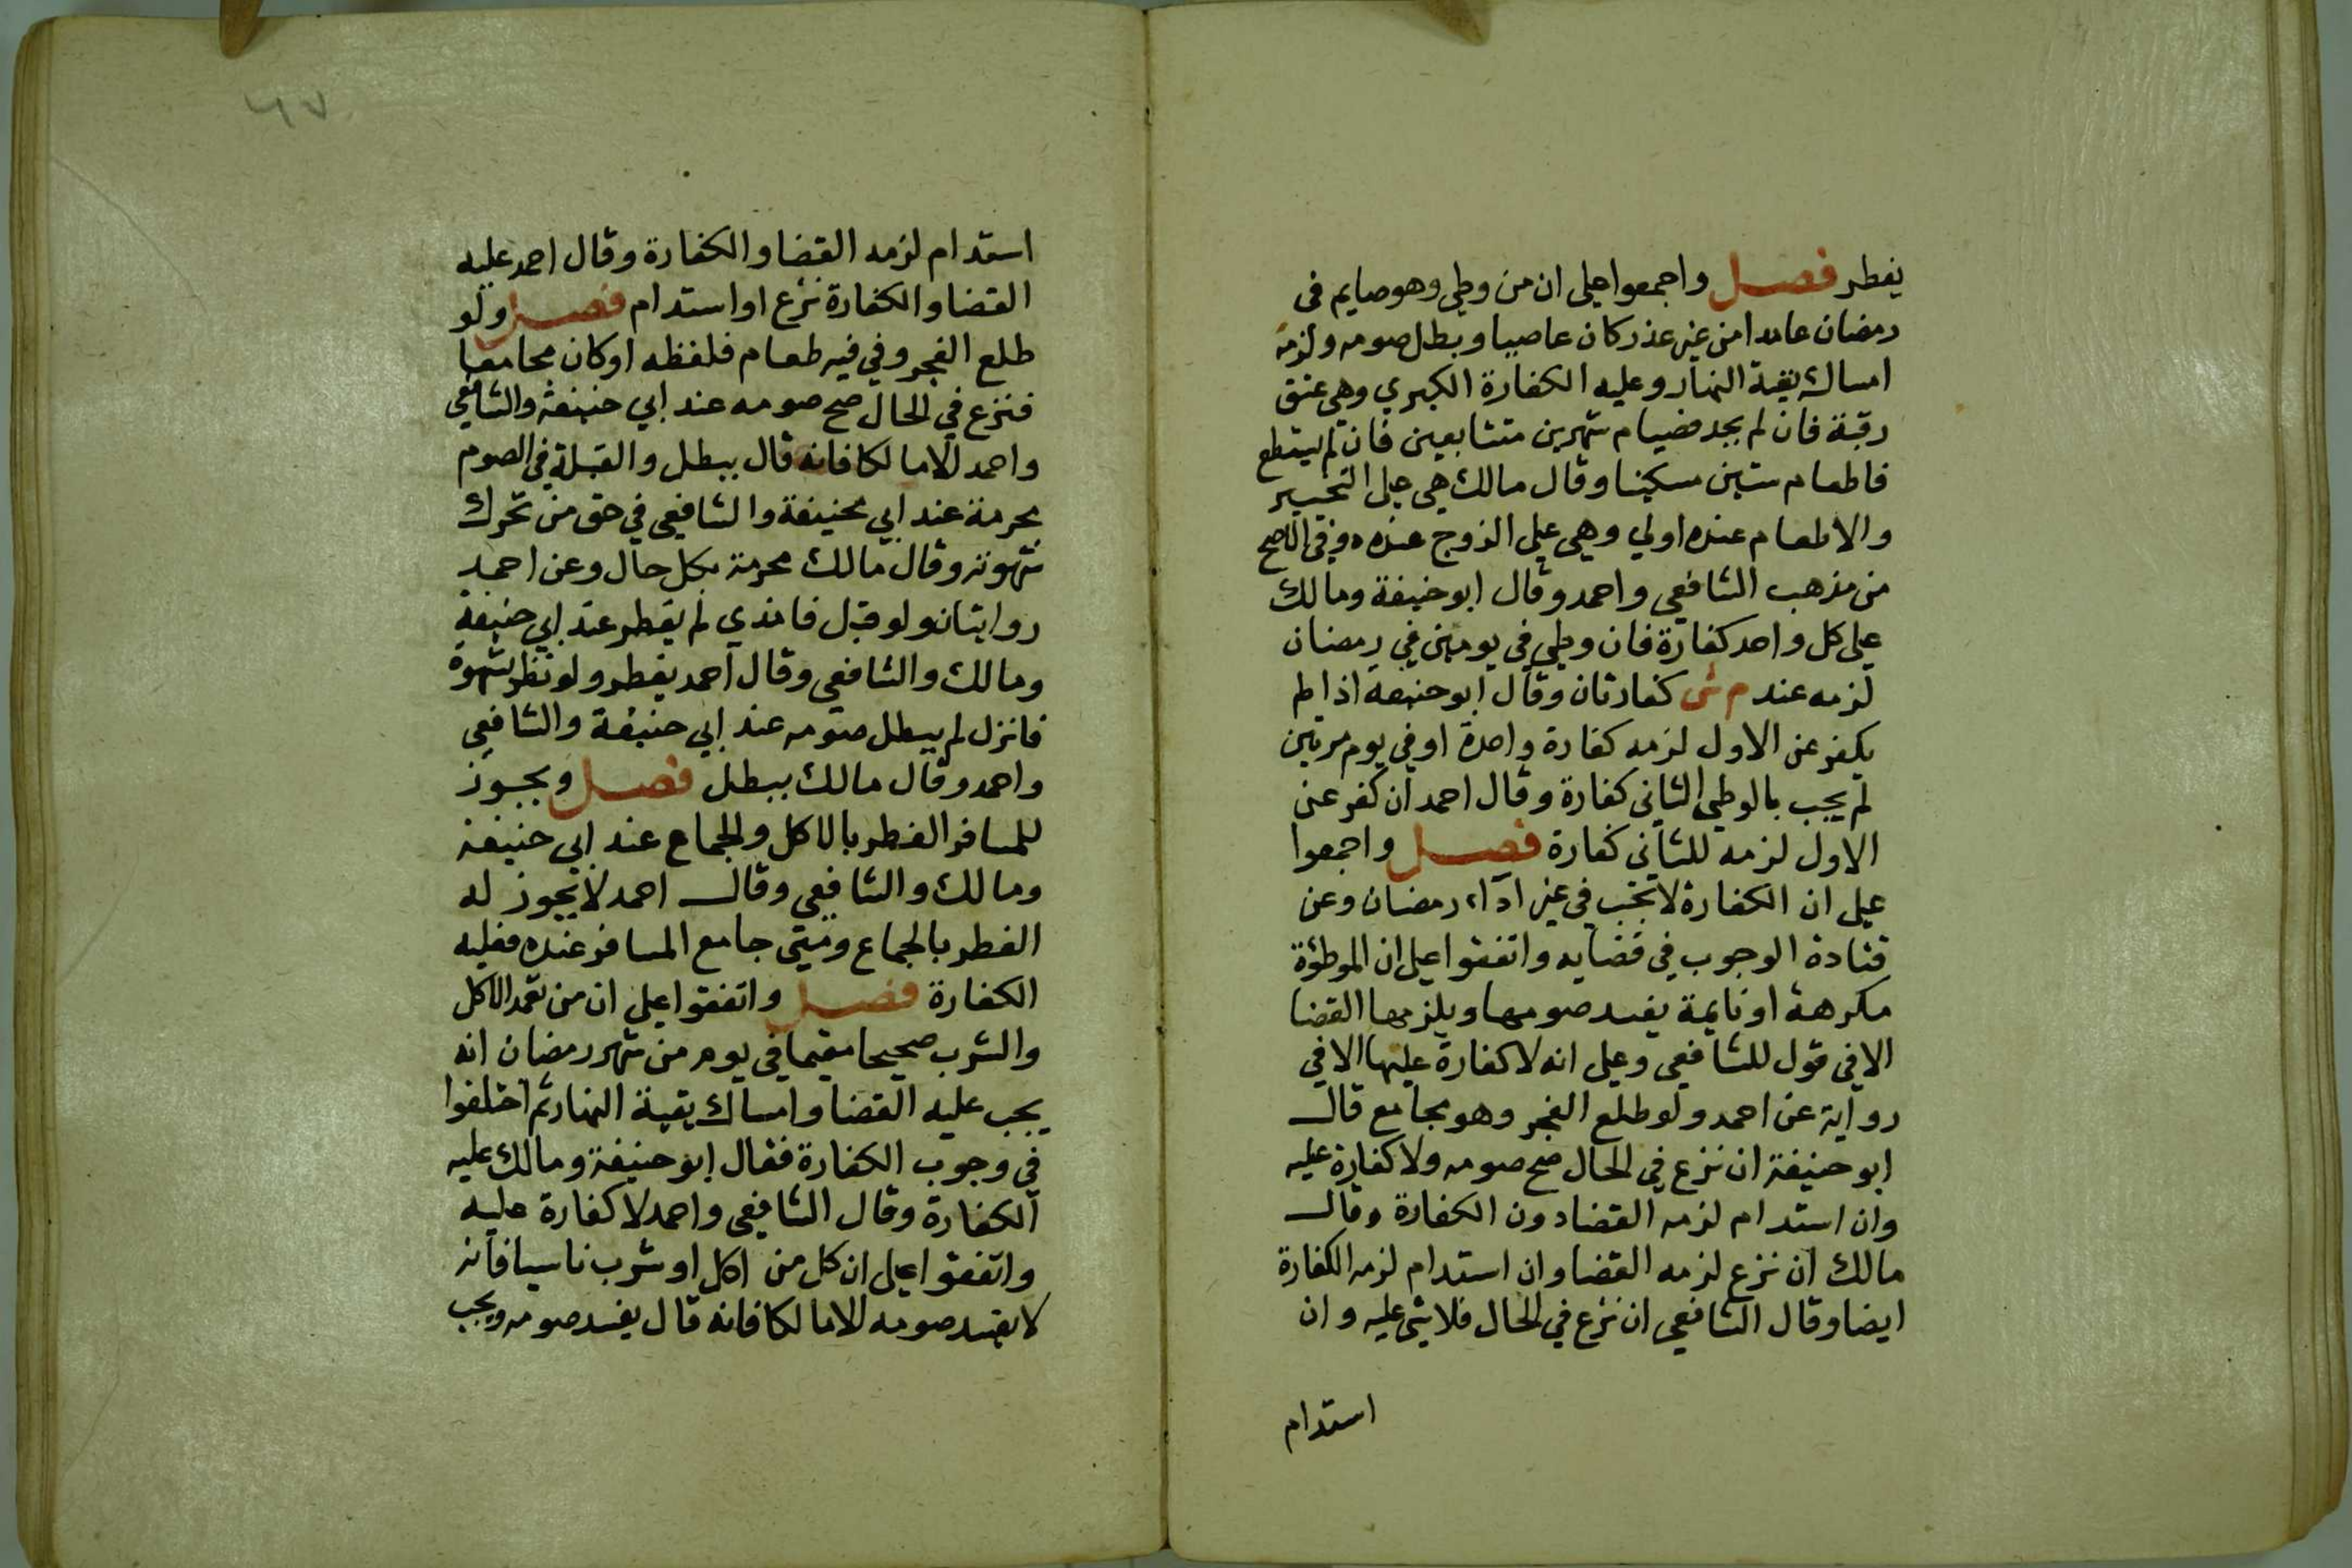 يفطر فصل واجمعوا على ان من وطي وهو صايم في
رمضان عامدا من غير عذر كان عاصيا وبطل صومه ولزمه
امساك بقية النهار وعليه الكفارة الكبري وهي عتق
رقبة فان لم يجد فصيام شهرين متتابعين فان لم يستطع
فاطعام ستين مسكينا وقال مالك هي على التخيير
والاطعام عنده اولي وهي علي الزوج عنده وفي الاصح
من مذهب الشافعي واحمد وقال ابو حنيفة ومالك
على كل واحد كفارة فان وطي في يومين في رمضان
لزمه عند م ش كفارتان وقال ابو حنيفة اذا لم
يكفر عن الاول لزمه كفارة واحدة او في يوم مرتين
لم يجب بالوطي الثاني كفارة وقال احمد ان كفر عن
الاول لزمه للثاني كفارة فصل واجمعوا
على ان الكفارة لا تجب في غير اداء رمضان وعن
قتادة الوجوب في قضايه واتفقوا على ان الموطؤة
مكرهة او نايمة يفسد صومها ويلزمها القضا
الا في قول للشافعي وعلى انه لا كفارة عليها الا في
رواية عن احمد ولو طلع الفجر وهو مجامع قال
ابو حنيفة ان نزع في الحال صح صومه ولا كفارة عليه
وان استدام لزمه القضا دون الكفارة وقال
مالك ان نزع لزمه القضا وان استدام لزمه الكفارة
ايضا وقال الشافعي ان نزع في الحال فلا شي عليه وان
استدام
٤٧
استدام لزمه القضا والكفارة وقال احمد عليه
القضا والكفارة نزع او استدام فصل ولو
طلع الفجر وفي فيه طعام فلفظه او كان مجامعا
فنزع في الحال صح صومه عند ابي حنيفة والشافعي
واحمد الا مالكا فانه قال يبطل والقبلة في الصوم
محرمة عند ابي حنيفة والشافعي في حق من تحرك
شهوته وقال مالك محرمة بكل حال وعن احمد
روايتان ولو قبل فامذي لم يفطر عند ابي حنيفة
ومالك والشافعي وقال احمد يفطر ولو نظر بشهوة
فانزل لم يبطل صومه عند ابي حنيفة والشافعي
واحمد وقال مالك يبطل فصل ويجوز
للمسافر الفطر بالاكل والجماع عند ابي حنيفة
ومالك والشافعي وقال احمد لا يجوز له
الفطر بالجماع ومتي جامع المسافر عنده فعليه
الكفارة فصل واتفقوا على ان من تعمد الاكل
والشرب صحيحا مقيما في يوم من شهر رمضان انه
يجب عليه القضا وامساك بقية النهار ثم اختلفوا
في وجوب الكفارة فقال ابو حنيفة ومالك عليه
الكفارة وقال الشافعي واحمد لا كفارة عليه
واتفقوا على ان كل من اكل او شرب ناسيا فانه
لا يفسد صومه الا مالكا فانه قال يفسد صومه ويجب